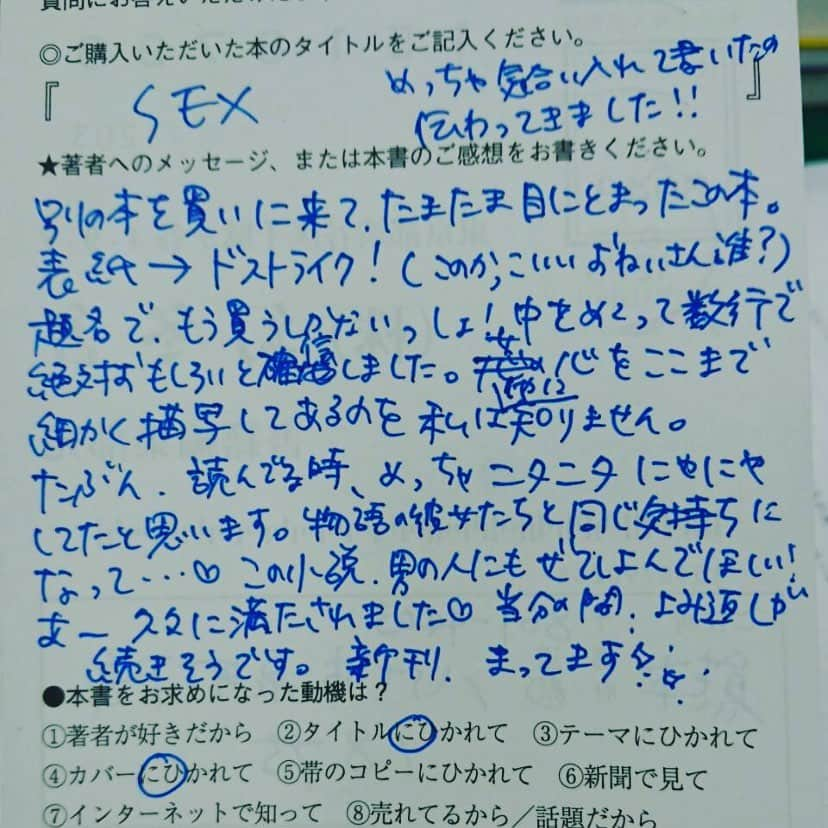 質問にお答えいただだ
◎ご購入いただいた本のタイトルをご記入ください。
『 SEX 』
めっちゃ気合い入れて書いたの
伝わってきました!!
★著者へのメッセージ、または本書のご感想をお書きください。
別の本を買いに来て、たまたま目にとまったこの本。
表紙→ドストライク!(このかっこいいおねいさん誰?)
題名で、もう買うしかないっしょ!中をめくって数行で
絶対おもしろいと確信しました。女心をここまで
細かく描写してあるのを私は知りません。
たぶん、読んでる時、めっちゃニタニタにやにや
してたと思います。物語の彼女たちと同じ気持ちに
なって…♡この小説、男の人にもぜひよんでほしい!
あー久々に満たされました♡当分の間、よみ返しが
続きそうです。新刊、まってます
●本書をお求めになった動機は?
①著者が好きだから ②タイトルにひかれて ③テーマにひかれて
④カバーにひかれて ⑤帯のコピーにひかれて ⑥新聞で見て
⑦インターネットで知って ⑧売れてるから/話題だから